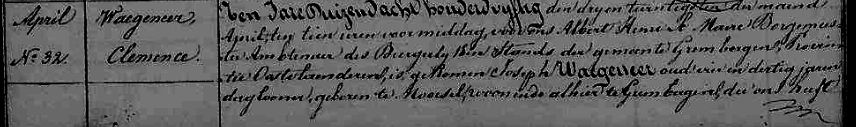 April
No. 32.
Waegeneer,
Clemence.
Ten Jare Duizend acht honderd vyftig den dryen twintigsten der maand
April, ten tien uren voor middag, voor ons Albert Henri St. Marc Borgemees-
ter Ambtenaer des Burgerlyken Stands der gemeente Grembergen, Provin-
tie Oostvlaenderen, is gekomen Joseph Waegeneer oud vier en dertig jaren
daglooner, geboren te Moorsel, woonende alhier te Grembergen, die ons heeft